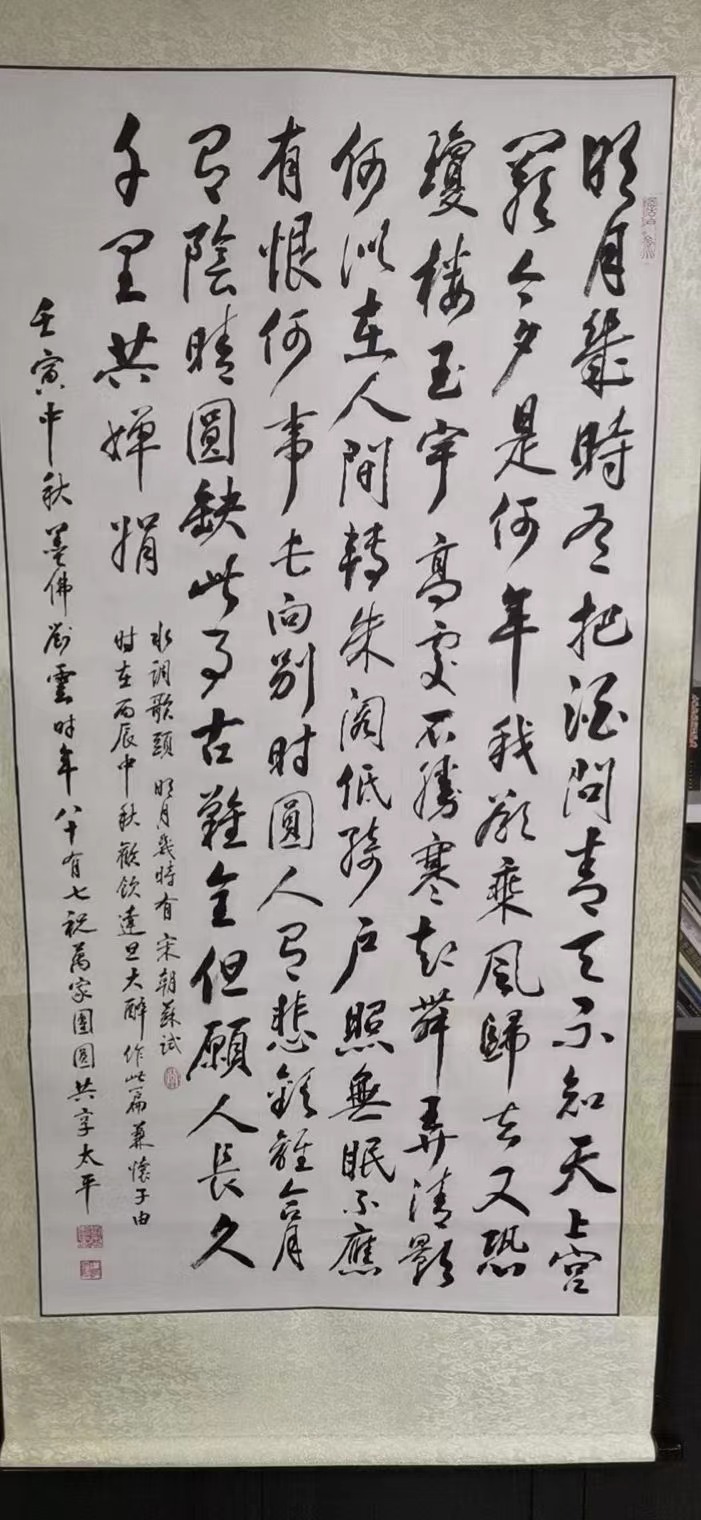 明月幾時有把酒問青天不知天上宮
闕今夕是何年我欲乘風歸去又恐
瓊楼玉宇高處不勝寒起舞弄清影
何似在人間轉朱阁低绮户照無眠不應
有恨何事长向别时圓人有悲歡離合月
有陰晴圓缺此事古難全但願人長久
千里共嬋娟
水调歌頭 明月幾時有 宋朝蘇試
时在丙辰中秋歡飲達旦大醉作此篇兼懷子由
壬寅中秋墨佛刘雲时年八十有七祝萬家團圓共享太平